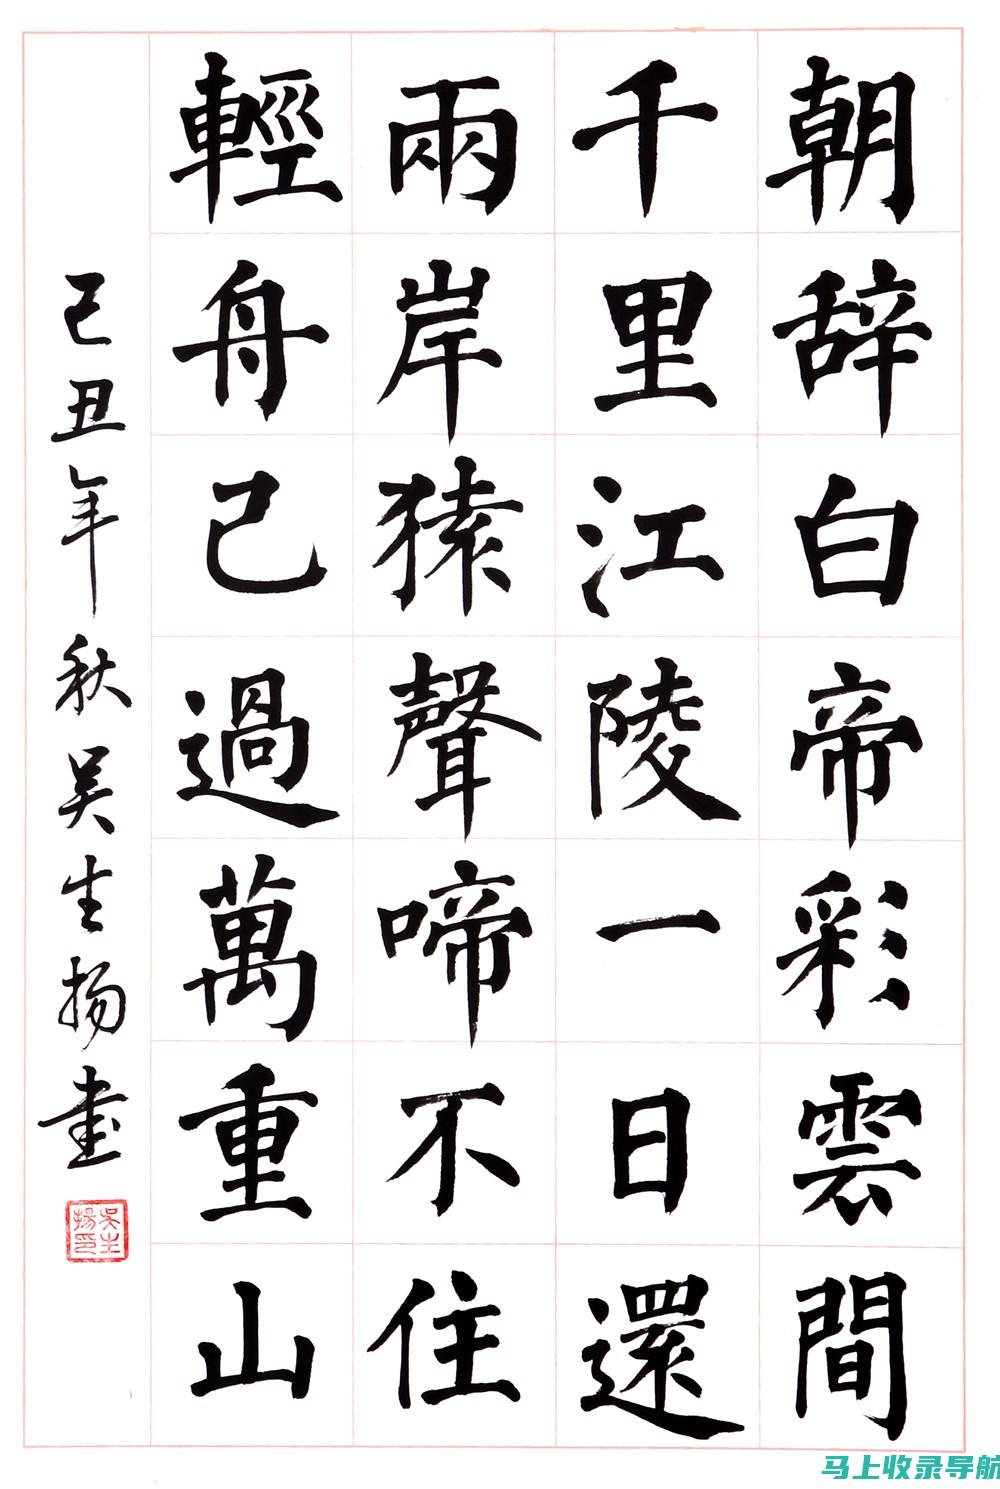 朝辞白帝彩雲間
千里江陵一日還
兩岸猿聲啼不住
輕舟已過萬重山
己丑年秋吴生扬书
吴生揚印
马上收录导航